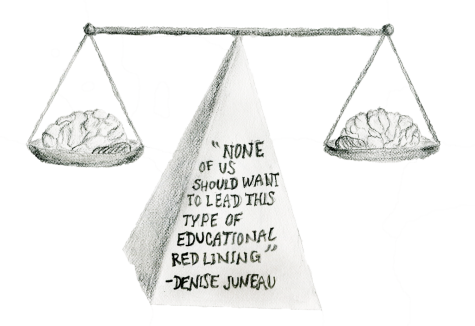 "NONE
OF US
SHOULD WANT
TO LEAD THIS
TYPE OF
EDUCATIONAL
RED LINING"
-DENISE JUNEAU